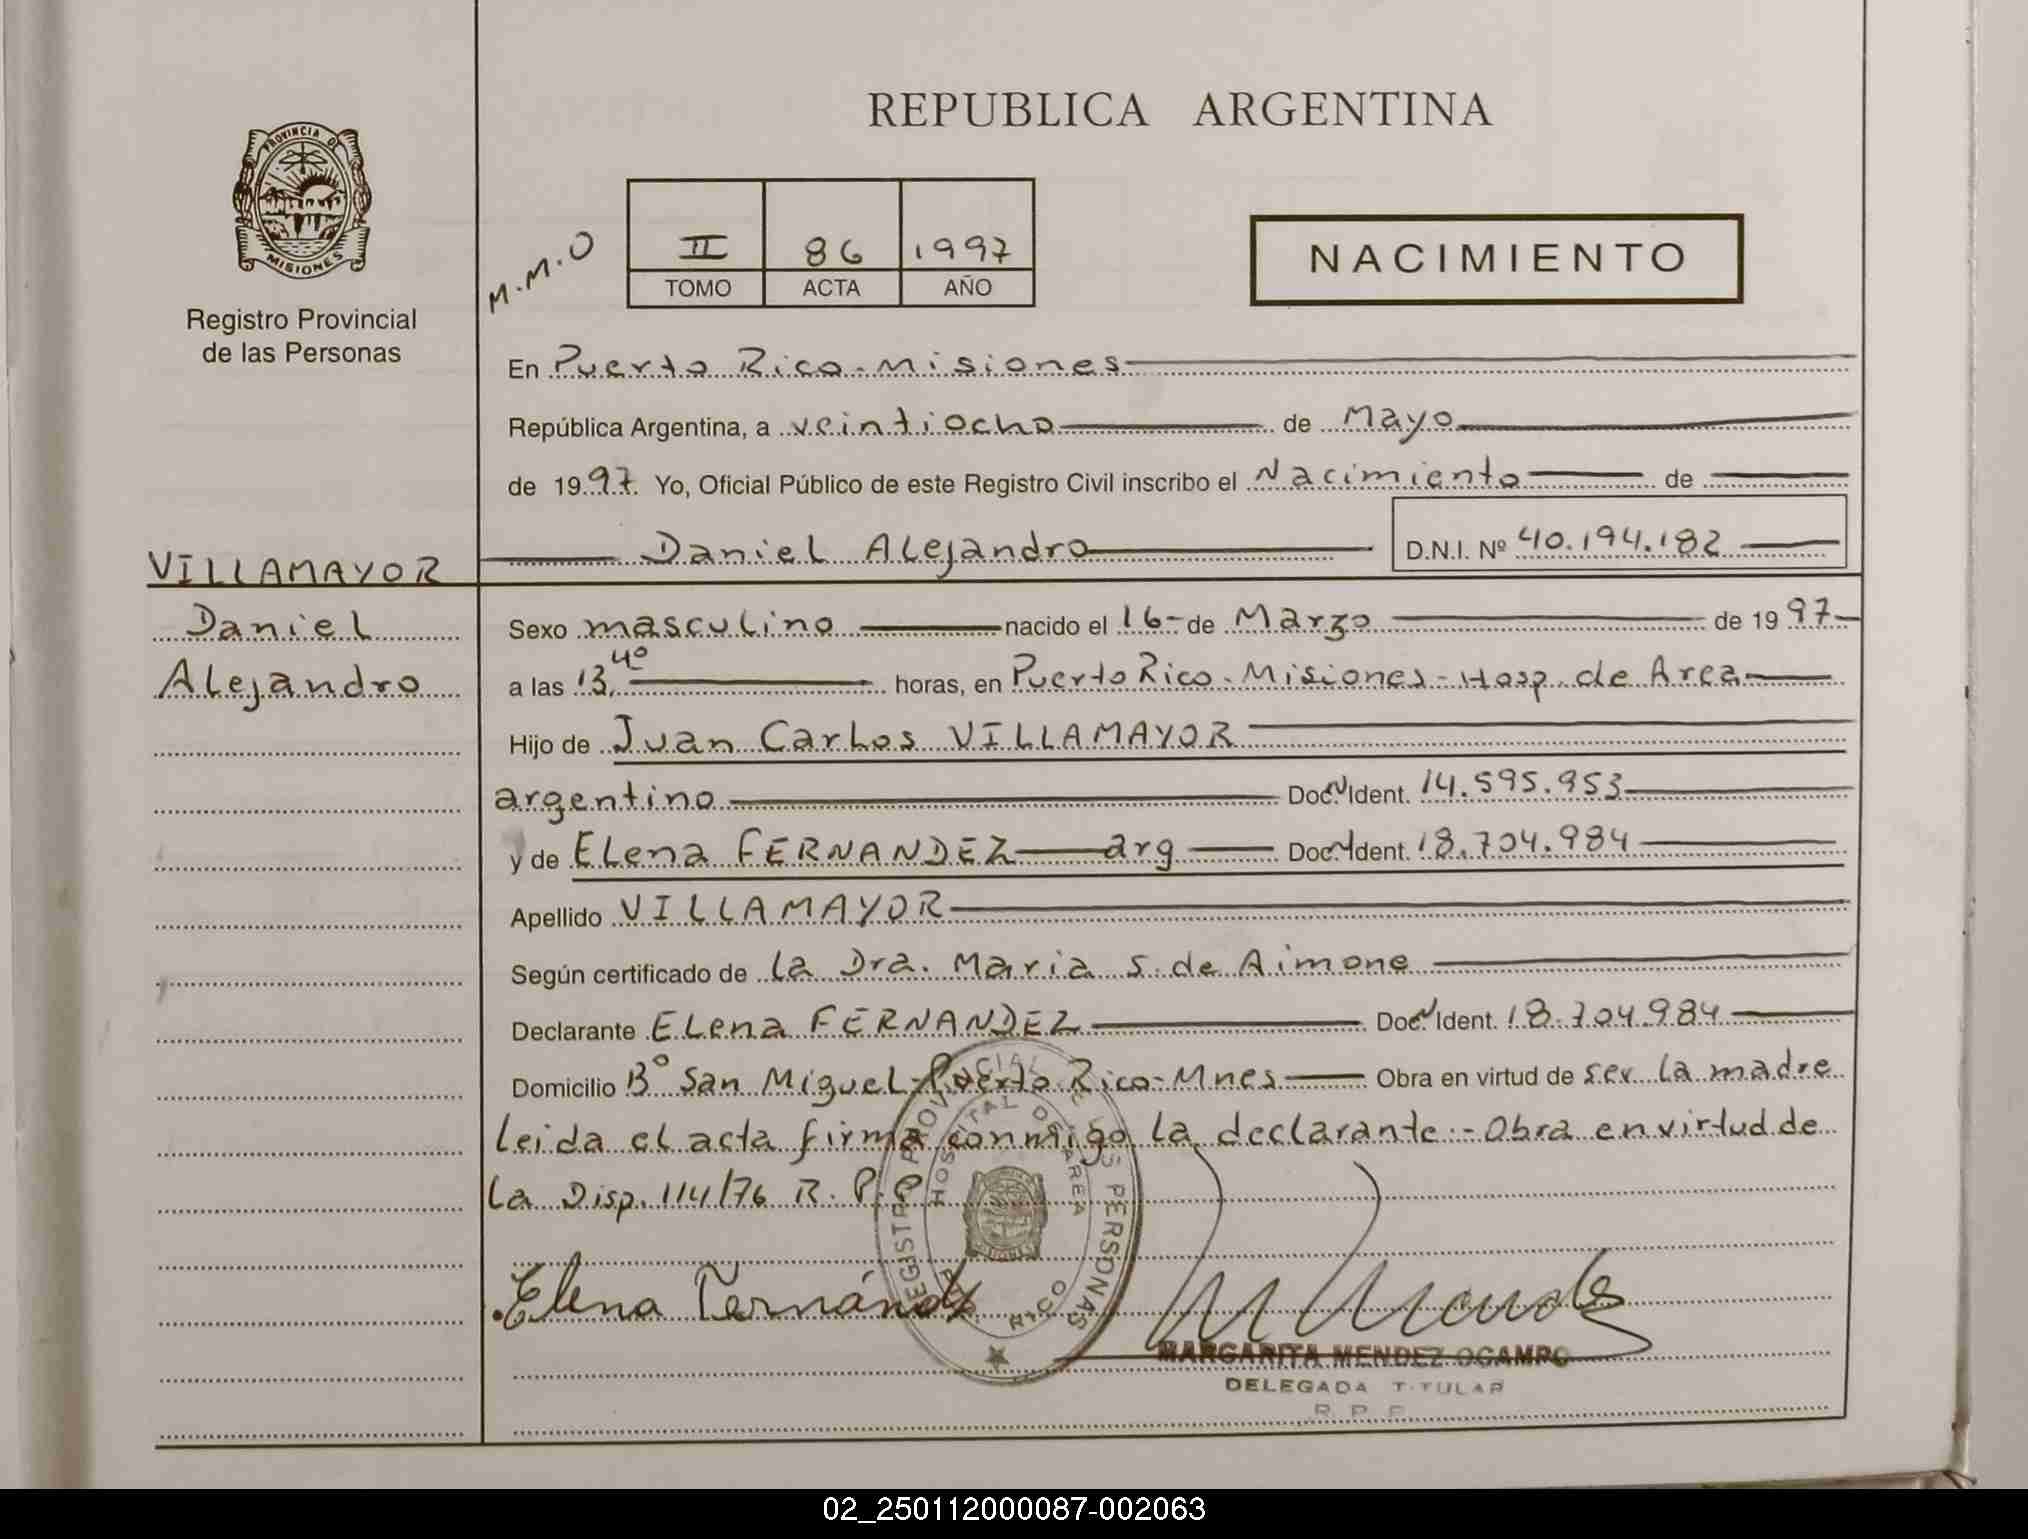 REPUBLICA ARGENTINA
PROVINCIA DE
MISIONES
Registro Provincial
de las Personas
M.M.O
II 86 1997
TOMO ACTA AÑO
NACIMIENTO
En Puerto Rico - Misiones
República Argentina, a veintiocho de Mayo
de 1997. Yo, Oficial Público de este Registro Civil inscribo el Nacimiento de
Daniel Alejandro D.N.I. Nº 40.194.182
VILLAMAYOR
Daniel
Alejandro
Sexo masculino nacido el 16 - de Marzo de 1997
a las 13,40 horas, en Puerto Rico - Misiones - Hosp. de Area
Hijo de Juan Carlos VILLAMAYOR
argentino Doc. N Ident. 14.595.953
y de Elena FERNANDEZ arg Doc. N Ident. 18.704.984
Apellido VILLAMAYOR
Según certificado de la Dra. Maria S. de Aimone
Declarante Elena FERNANDEZ Doc. N Ident. 18.704.984
Domicilio Bº San Miguel - Puerto Rico - Mnes Obra en virtud de ser la madre
leida el acta firma conmigo la declarante - Obra en virtud de
la Disp. 114/76 R. P. P
REGISTRO PROVINCIAL DE LAS PERSONAS
HOSPITAL DE AREA
PTO. RICO
Elena Fernández
MARGARITA MENDEZ OCAMPO
DELEGADA TITULAR
R. P. P.
02_250112000087-002063